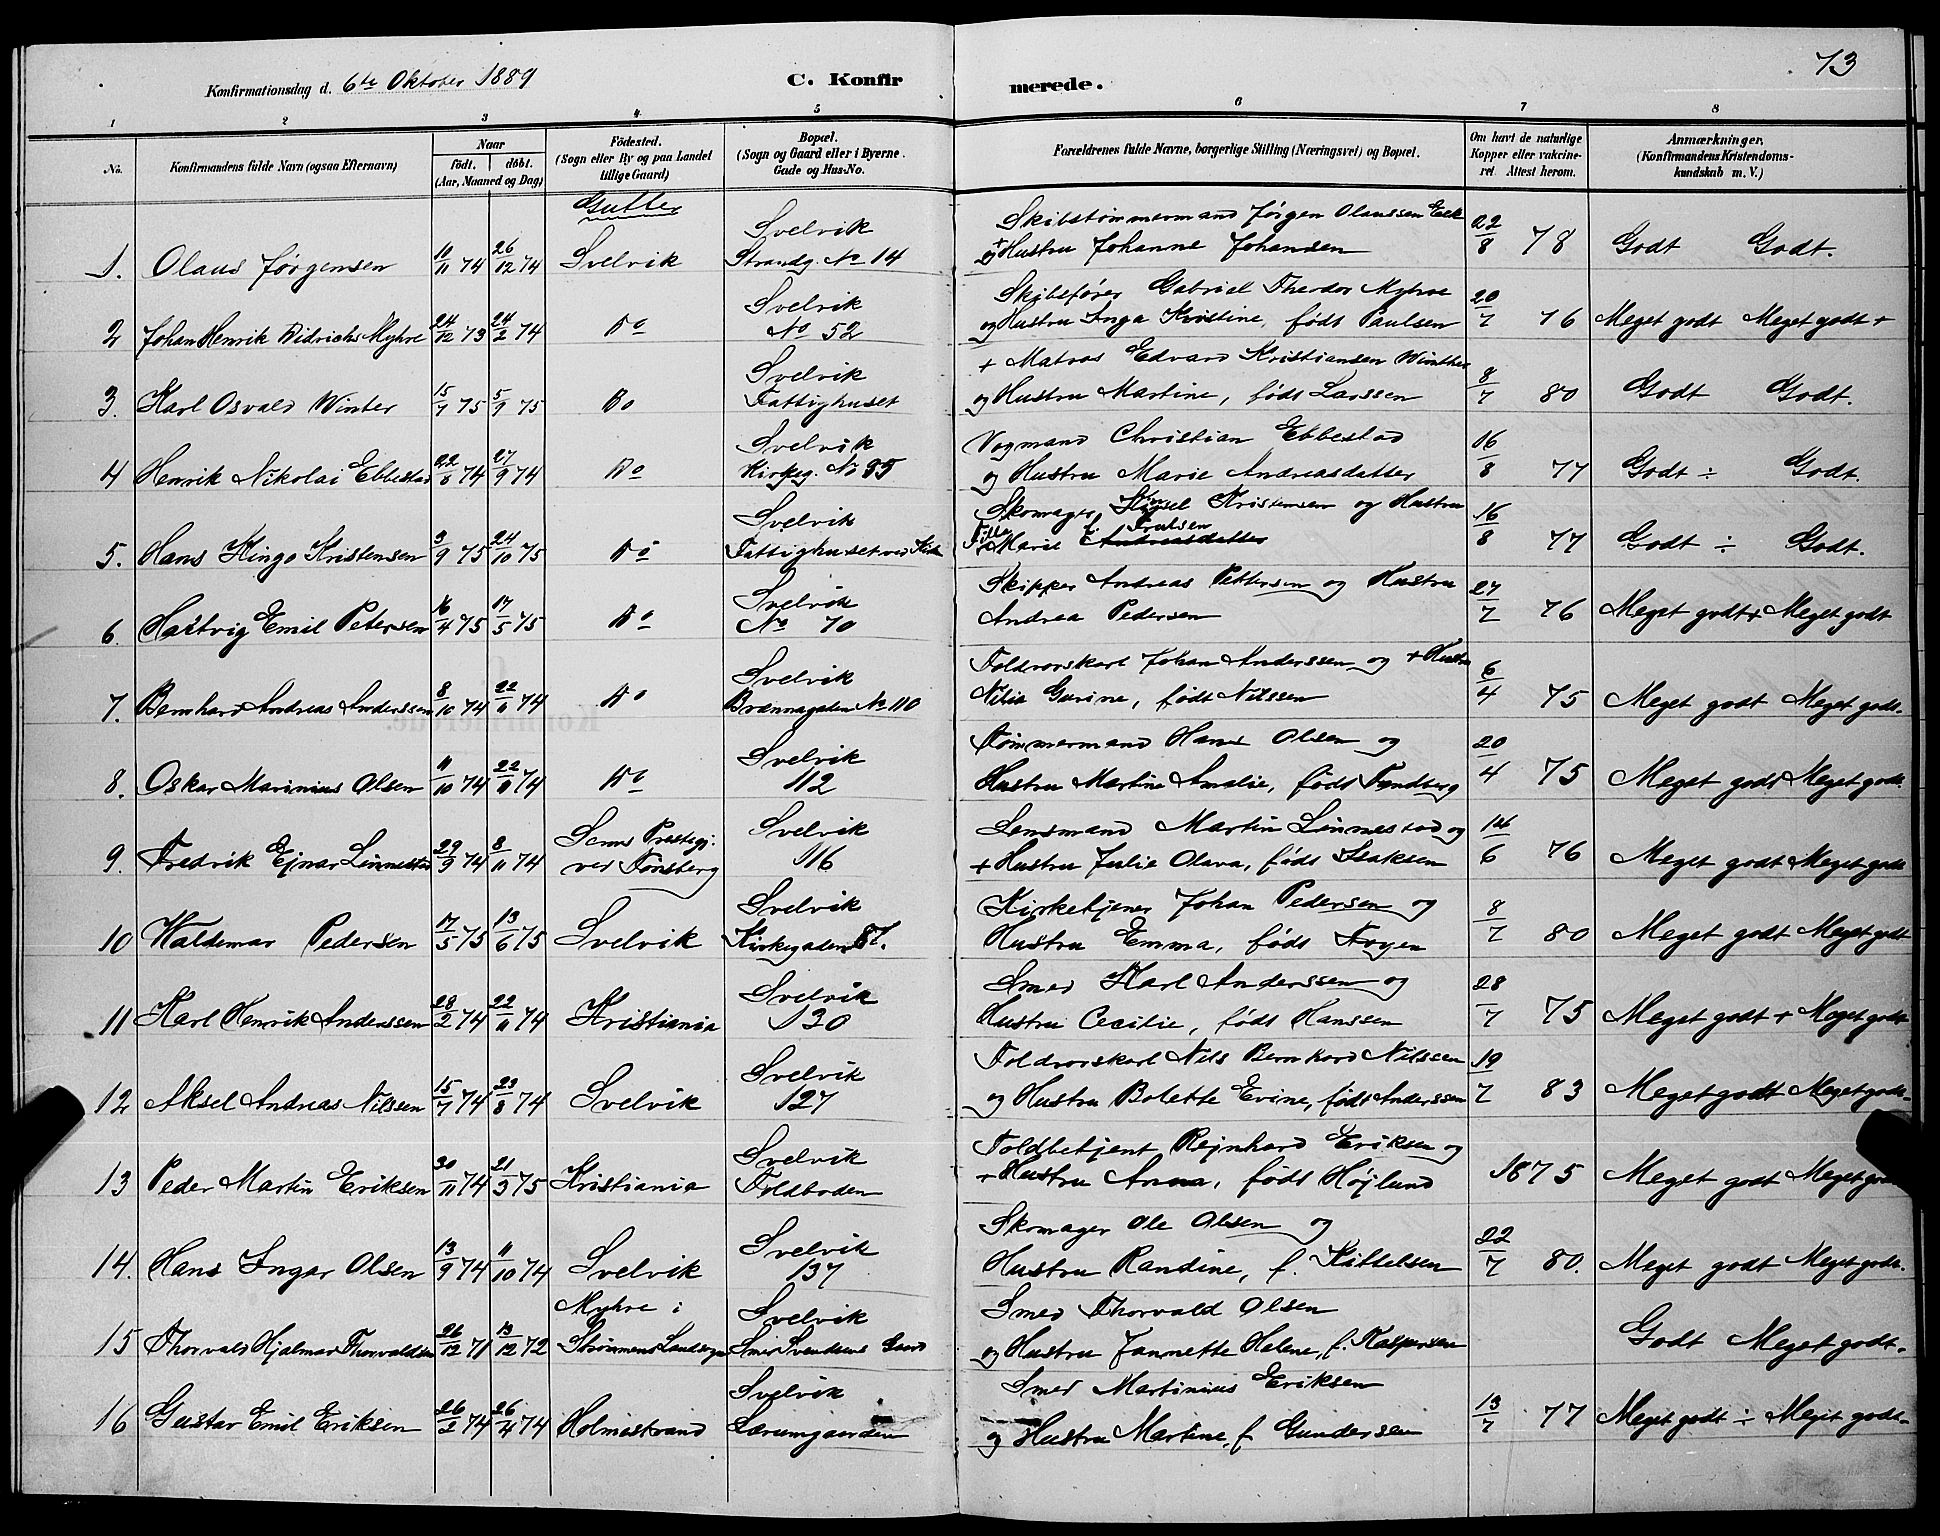 73
Konfirmationsdag d. 6te Oktober 1889 C. Konfirmerede.
1 2 3 4 5 6 7 8
No. Konfirmandens fulde Navn (ogsaa Efternavn) Naar født. døbt. (Aar, Maaned og Dag) Fødested. (Sogn eller By og paa Landet tillige Gaard) Bopæl. (Sogn og Gaard eller i Byerne. Gade og Hus-No. Forældrenes fulde Navne, borgerlige Stilling (Næringsvei) og Bopæl. Om havt de naturlige Kopper eller vakcineret. Attest herom. Anmærkninger. (Konfirmandens Kristendomskundskab m. V.)
Gutter
Svelvik Skibstømmermand Jørgen Olaussen Eek
1. Olaus Jørgensen 11/11 74 26/12 74 Svelvik Strandg. No 14 + og Hustru Johanne Johansen 22/8 78 Godt Godt.
Svelvik Skibsfører Gabriel Theodor Myhre
2 Johan Henrik Didrichs Myhre 24/12 73 24/2 74 Do No 52 og Hustru Inga Kristine, født Paulsen 20/7 76 Meget godt Meget godt +
Svelvik + Matros Edvard Kristiansen Winther
3. Karl Osvald Winter 15/7 75 5/9 75 Do Fattighuset og Hustru Martine, født Larssen 8/7 80 Godt Godt.
Svelvik Vogmand Christian Ebbestad
4 Henrik Nikolai Ebbestad 22/8 74 27/9 74 Do Kirkeg. No 35 og Hustru Marie Andreasdatter 16/8 77 Godt ÷ Godt.
Svelvik Skomager Kristensen og Hustru
f.
5. Hans Kingo Kristensen 3/9 75 24/10 75 Do Fattighuset ved Marie Andreasdatter 16/8 77 Godt ÷ Godt.
Svelvik Skipper Andreas Pettersen og Hustru
6. Hartvig Emil Petersen 16/4 75 17/5 75 Do No 70 Andrea Pedersen 27/7 76 Meget godt + Meget godt
Svelvik Toldrorskarl Johan Anderssen og + Hustru
7. Bernhard Andreas Anderssen 8/10 74 22/11 74 Do No 110 Nilia Gurine, født Nilssen 6/4 75 Meget godt Meget godt.
Svelvik Tømmermand Hans Olsen og
8. Oskar Marinius Olsen 11/10 74 22/11 74 Do 112 Hustru Martine Amalie, født Tandberg 20/4 75 Meget godt Meget godt.
Sems Prestegj. Svelvik Lensmand Martin Linnestad og
9. Fredrik Ejnar Linnestad 29/9 74 8/11 74 ved Tønsberg 116 + Hustru Julie Olava, født Isaksen 14/6 76 Meget godt Meget godt
Svelvik Kirketjener Johan Pedersen og
10 Waldemar Pedersen 17/5 75 13/6 75 Svelvik Kirkegaden 87. Hustru Emma, født Foyen 8/7 80 Meget godt Meget godt
Svelvik Smed Karl Anderssen og
11 Karl Henrik Anderssen 28/2 74 22/11 74 Kristiania 130 Hustru Cecilie, født Hanssen 28/7 75 Meget godt + Meget godt
Svelvik Toldrorskarl Nils Bernhard Nilssen
12 Aksel Andreas Nilssen 15/7 74 23/8 74 Svelvik 127 og Hustru Bolette Evine, født Anderssen 19/7 83 Meget godt Meget godt.
Svelvik Toldbetjent Rejnhard Eriksen og
13 Peder Martin Eriksen 30/11 74 21/3 75 Kristiania Toldboden + Hustru Anna, født Højlund 1875 Meget godt Meget godt
Svelvik Skomager Ole Olsen og
14. Hans Ingar Olsen 13/9 74 11/10 74 Svelvik 137 Hustru Randine, f. Kittelsen 22/7 80. Meget godt Meget godt.
Myhre i Svelvik Smed Thorvald Olsen
15 Thorvald Hjalmar Thorvaldsen 26/12 71 13/12 72 Strømmens Smed Svendsens Gaard og Hustru Jannette Helene, f. Kaspersen Godt Meget godt.
Svelvik Smed Martinius Eriksen
16 Gustav Emil Eriksen 26/2 74 26/4 74 Holmestrand Lærumgaarden og Hustru Martine, f. Gundersen 13/7 77 Meget godt ÷ Meget godt.